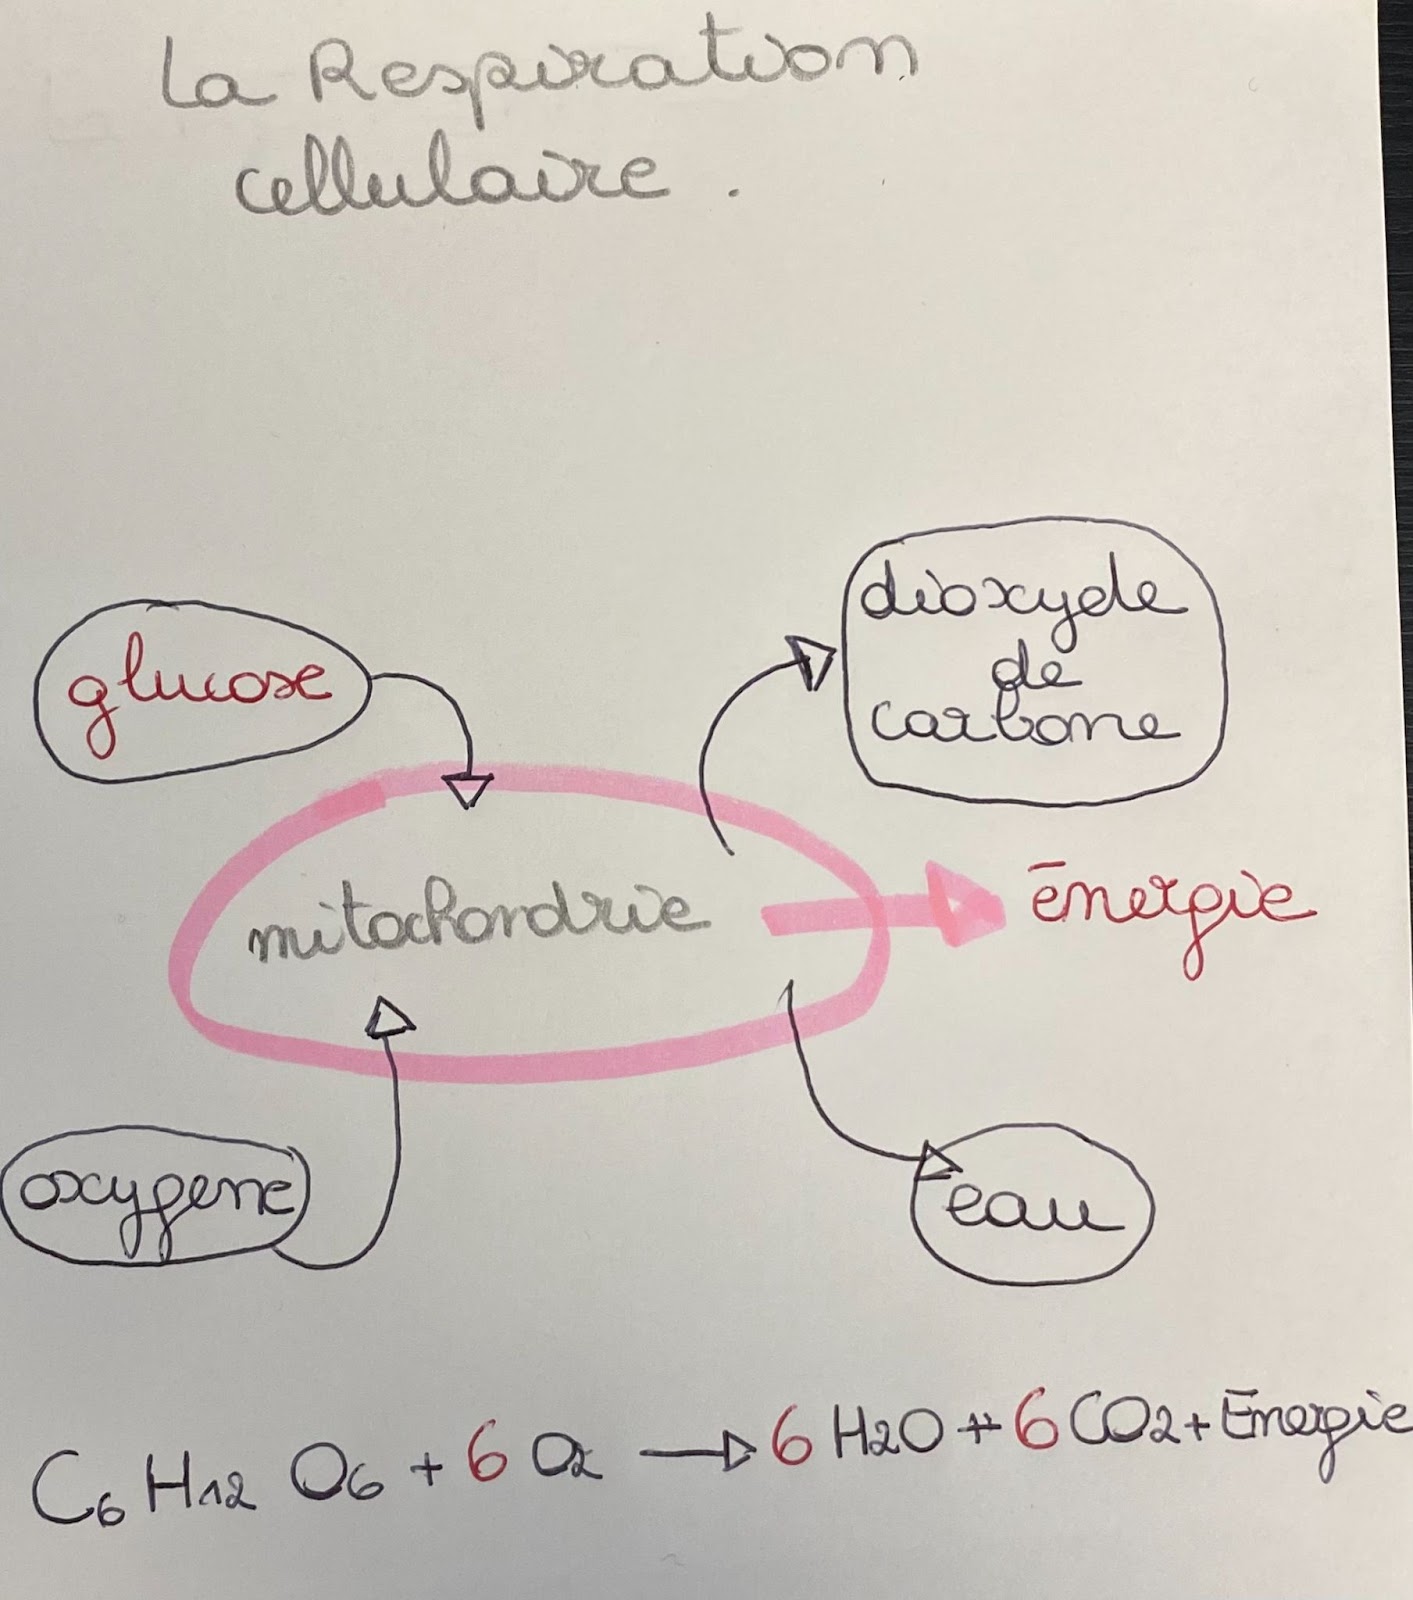 La Respiration
cellulaire.
glucose
dioxyde
de
carbone
mitochondrie
énergie
oxygene
eau
C6 H12 O6 + 6 O2 → 6 H2O + 6 CO2 + Energie